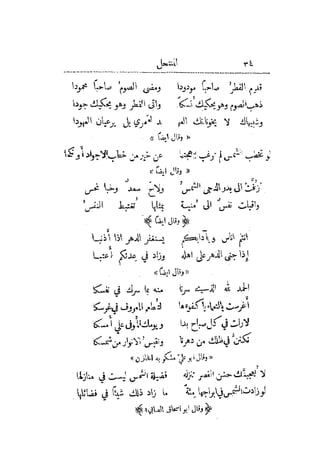 ٣٤ المنتحل
قدم الفطر صاحباً مودودا ومضى الصوم صاحباً محمودا
ذهب الصوم وهو يحكيك نسكاً واتى الفطر وهو يحكيك جودا
وشبيهاك لا يخونانك العهد لعمري بل يرعيان العهودا
« وقال ايضاً »
لو تخطب الشمس لم ترغب ببهجتها عن خير من خطاب الاجواد
« وقال ايضاً »
زفت الى بدر الدجى الشمس ولاح سعد وخبا نحس
واقبلت نفس الى منية بمثلها تغتبط النفس
« وقال ايضاً »
انتم اناس وبآدابكم يستغفر الدهر اذا أذنبا
إذا جنى الدهر على اهله وزاد في عدتكم أعتبا
« وقال ايضاً »
الحمد لله الذي منه بما سرك في نفسكا
أغرست في غرسكا
لا زلت في كل صباح بدا ويومك الموفى على أمسكا
تمكث في ظلك من دهرنا ونقبس الانوار من شمسكا
« وقال ابو علي مشكويه »
لا يعجبنك حسن القصر تنزله فضيلة الشمس ليست في منازلها
لو زادت الشمس في ابراجها مئة ما زاد ذلك شيئاً في فضائلها
« وقال ابو اسحاق الصابي »